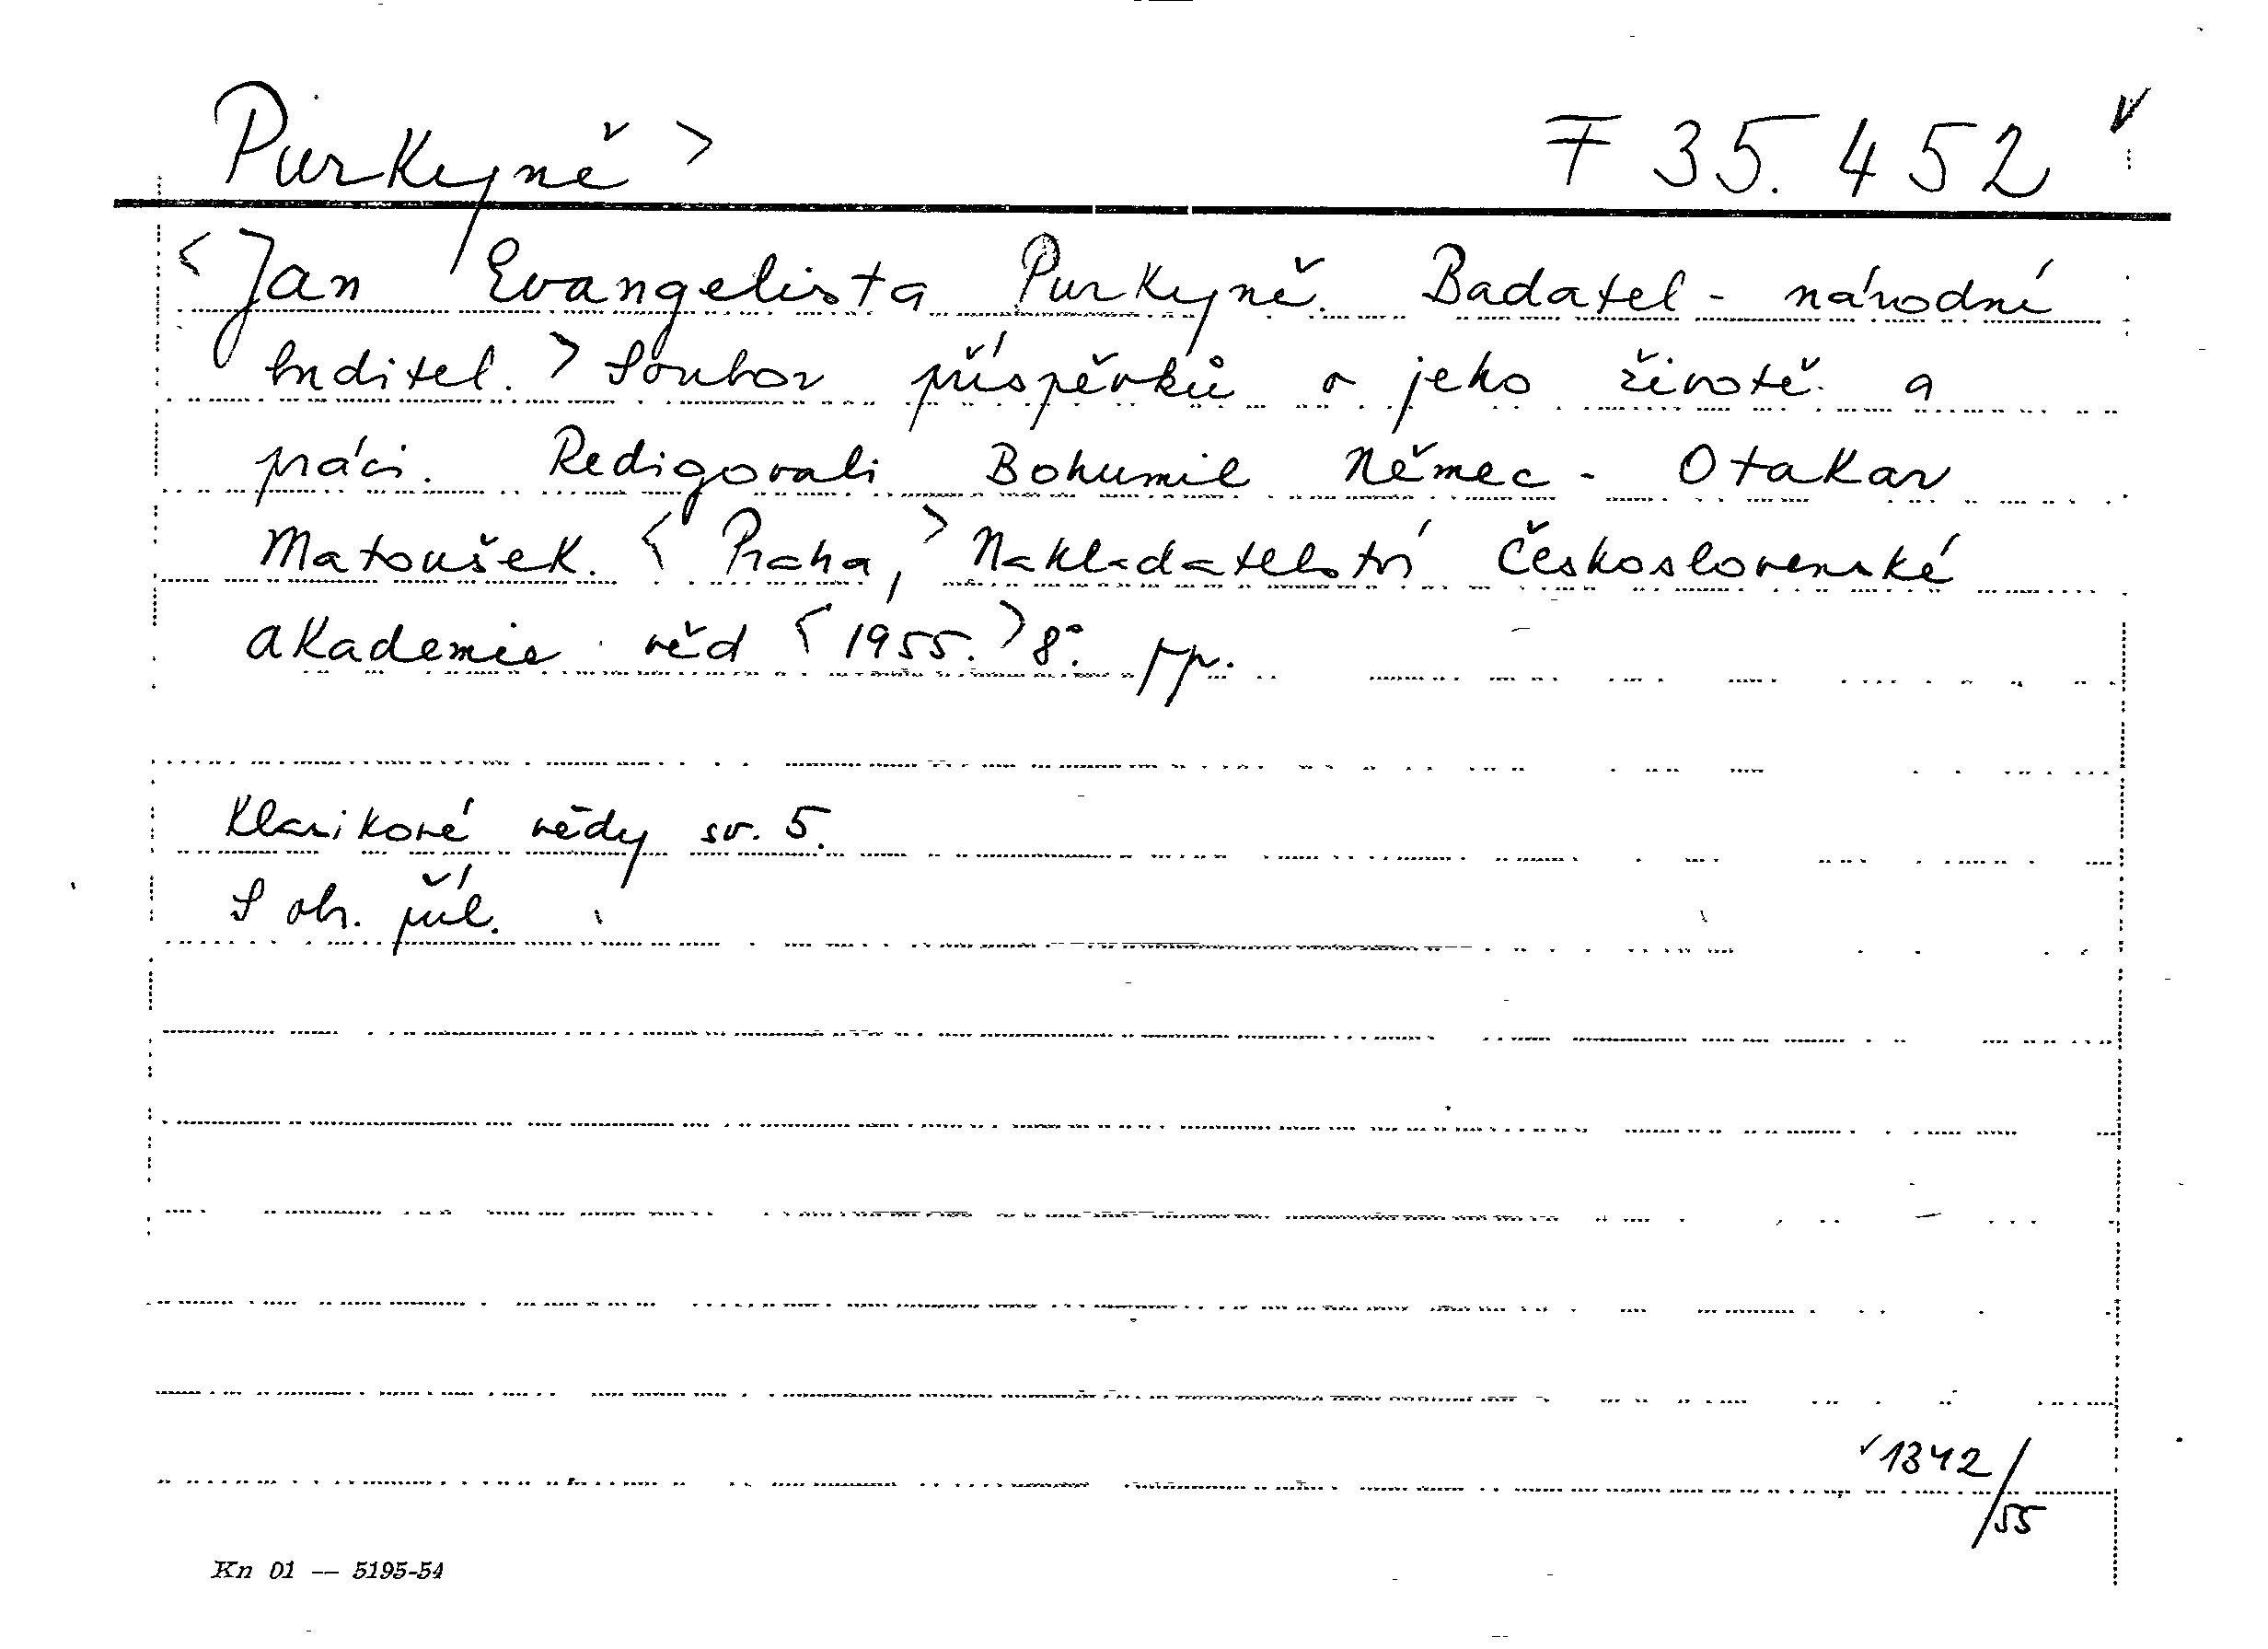 Purkyně > F 35.452 ✓
<Jan Evangelista Purkyně. Badatel - národní
buditel.> Soubor příspěvků o jeho životě a
práci. Redigovali Bohumil Němec - Otakar
Matoušek. <Praha,> Nakladatelství Československé
akademie věd <1955.> 8°. pp.
Klasikové vědy sv. 5.
S obr. příl.
✓1342/55
Kn 01 — 5195-54